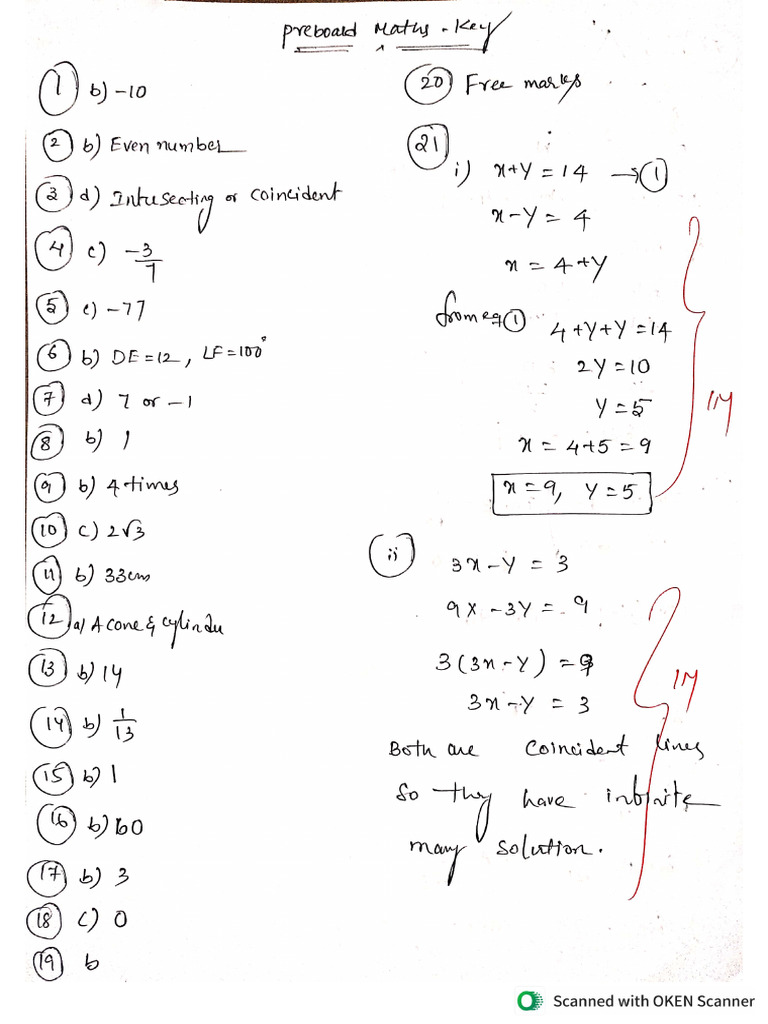 Preboard Maths - Key
1 b) -10
2 b) Even number
3 d) Intersecting or coincident
4 c) -3/7
5 c) -77
6 b) DE = 12, LF = 100°
7 d) 7 or -1
8 b) 1
9 b) 4 times
10 c) 2√3
11 b) 33cm
12 a) A cone & cylinder
13 b) 14
14 b) 1/13
15 b) 1
16 b) 60
17 b) 3
18 c) 0
19 b
20 Free marks
21
i) x+y = 14 → 1
x-y = 4
x = 4+y
from eq 1
4+y+y = 14
2y = 10
y = 5
x = 4+5 = 9
x = 9, y = 5
1M
ii
3x-y = 3
9x-3y = 9
3(3x-y) = 9
3x-y = 3
1M
Both are coincident lines
So they have infinite
many solution.
Scanned with OKEN Scanner